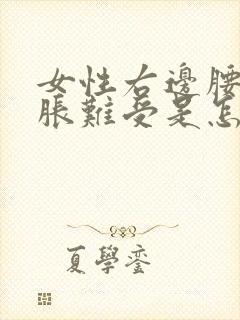 女性右邊腰
脹難受是怎
夏學鑾